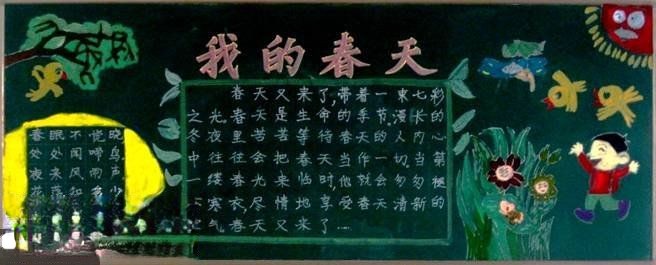 我的春天
春天又来了,带着一束七彩
之光,春天是生命
冬夜里苦苦等待春天的人内心
中往往会把春天当作一切,当第
一缕春光来临时,他就匆匆
寒衣,尽情地享受春天清新的
气 春天又来了……
春眠不觉晓
处处闻啼鸟
夜来风雨声
花落知多少